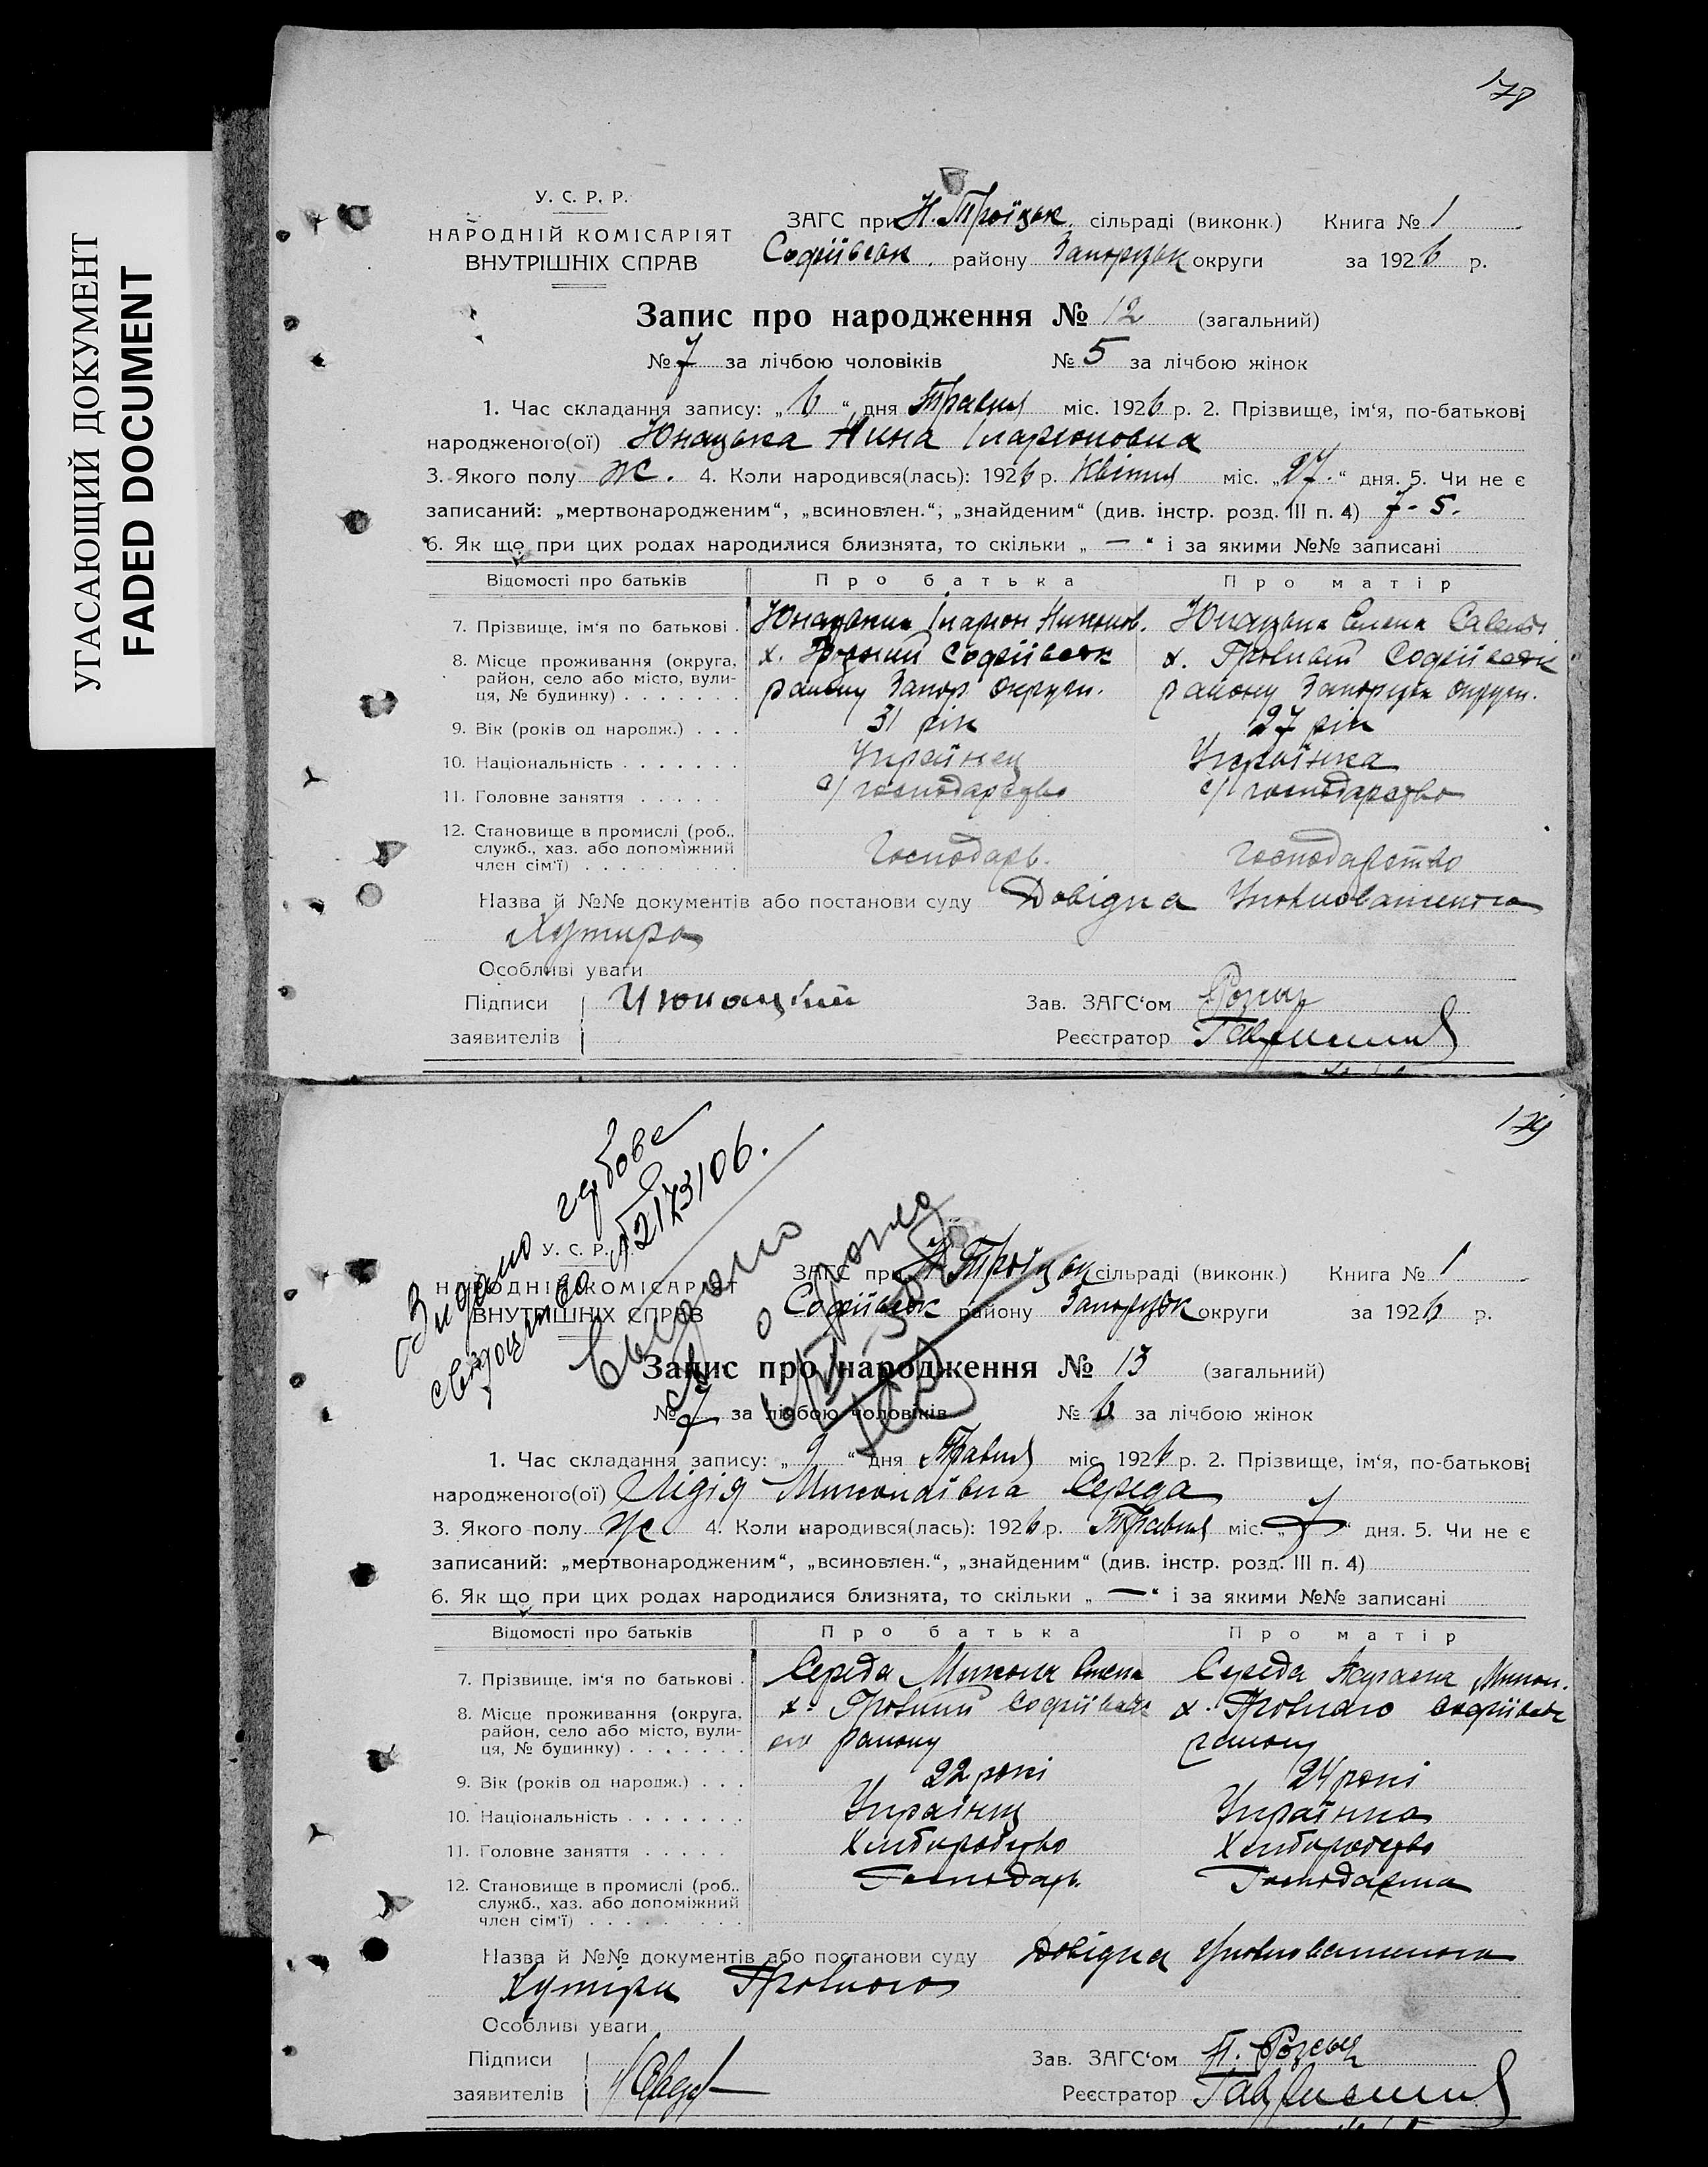 УГАСАЮЩИЙ ДОКУМЕНТ
FADED DOCUMENT
178
У. С. Р. Р.
НАРОДНІЙ КОМІСАРІЯТ
ВНУТРІШНІХ СПРАВ
ЗАГС при Н. Троїцьк. сільраді (виконк.) Книга № 1
Софіївськ. району Запорізьк округи за 1926 р.
Запис про народження № 12 (загальний)
№ 7 за лічбою чоловіків № 5 за лічбою жінок
1. Час складання запису: „6“ дня Травня міс. 1926 р. 2. Прізвище, ім‘я, по-батькові
народженого(ої) Юнацька Нина Іларионовна
3. Якого полу ж. 4. Коли народився(лась): 1926 р. Квітня міс. „27.“ дня. 5. Чи не є
записаний: „мертвонародженим“, „всиновлен.“, „знайденим“ (див. інстр. розд. III п. 4) 7-5.
6. Як що при цих родах народилися близнята, то скільки „—“ і за якими №№ записані
Відомості про батьків Про батька Про матір
7. Прізвище, ім‘я по батькові . Іларион Юнацька Елена
8. Місце проживання (округа, х. Софіївськ х. Софіївськ
район, село або місто, вули- району Запор. округи. району округи.
ця, № будинку) . . . . . . .
9. Вік (років од народж.) . . . 31 рік 27 рік
10. Національність . . . . . . . Українец Українка
11. Головне заняття . . . . . с/господарство с/господарство
12. Становище в промислі (роб.,
служб., хаз. або допоміжний Господарь. господарство
член сім‘ї) . . . . . . . . .
Назва й №№ документів або постанови суду Довідка Уповноваженого
Хутира
Особливі уваги
Підписи Июнацкий Зав. ЗАГС‘ом
заявителів Реєстратор
179
Видано гербове
свідоцтво №2173106.
У. С. Р. Р.
НАРОДНІЙ КОМІСАРІЯТ
ВНУТРІШНІХ СПРАВ
ЗАГС при Н. Троїцьк сільраді (виконк.) Книга № 1
Софіївськ району Запорізьк округи за 1926 р.
Запис про народження № 13 (загальний)
№ 7 за лічбою чоловіків № 6 за лічбою жінок
1. Час складання запису: „9“ дня Травня міс. 1926 р. 2. Прізвище, ім‘я, по-батькові
народженого(ої) Лідія Миколаівна Середа
3. Якого полу ж 4. Коли народився(лась): 1926 р. Травня міс. „7“ дня. 5. Чи не є
записаний: „мертвонародженим“, „всиновлен.“, „знайденим“ (див. інстр. розд. III п. 4)
6. Як що при цих родах народилися близнята, то скільки „—“ і за якими №№ записані
Відомості про батьків Про батька Про матір
7. Прізвище, ім‘я по батькові . Середа Микола Середа
8. Місце проживання (округа, х. Софіївськ х. Софіївськ
район, село або місто, вули- ого району району
ця, № будинку) . . . . . . .
9. Вік (років од народж.) . . . 22 рокі 24 рокі
10. Національність . . . . . . . Українец Українка
11. Головне заняття . . . . . Хлиборобство Хлиборобство
12. Становище в промислі (роб., Господарь. Господарка
служб., хаз. або допоміжний
член сім‘ї) . . . . . . . . .
Назва й №№ документів або постанови суду Довідка Уповноваженого
Хутіра
Особливі уваги
Підписи Зав. ЗАГС‘ом
заявителів Реєстратор